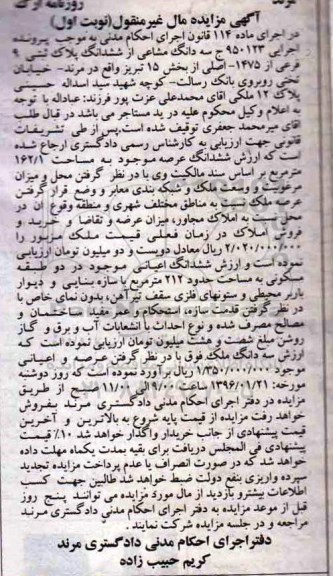 مرند
روزنامه ارک
آگهی مزایده مال غیرمنقول(نوبت اول)
در اجرای ماده ۱۱۴ قانون اجرای احکام مدنی به موجب پرونده
اجرایی ۹۵۰۱۲۳ ج سه دانگ مشاعی از ششدانگ پلاک ثبتی ۹
فرعی از ۱۴۷۵- اصلی از بخش ۱۵ تبریز واقع در مرند- خیابان
بختی روبروی بانک رسالت- کوچه شهید سید اسداله حسینی
پلاک ۱۲ ملکی آقای محمدعلی عزت پور فرزند: عباداله با توجه
به اعلام وکیل محکوم علیه در ید مستاجر می باشد در قبال طلب
آقای میرمحمد جعفری توقیف شده است.پس از طی تشریفات
قانونی جهت ارزیابی به کارشناس رسمی دادگستری ارجاع شده
است که ارزش ششدانگ عرصه موجود به مساحت ۱۶۲/۱
مترمربع بر اساس سند مالکیت وی با در نظر گرفتن محل و میزان
مرغوبیت و وسعت ملک و شبکه بندی معابر و وضع قرار گرفتن
عرصه ملک نسبت به مناطق مختلف شهری و منطقه وقوع آن در
محل نسبت به املاک مجاور، میزان عرضه و تقاضا و خرید و
فروش املاک در زمان فعلی قیمت ملک مزبور را
۲/۰۲۰/۰۰۰/۰۰۰ ریال معادل دویست و دو میلیون تومان ارزیابی
نموده است و ارزش ششدانگ اعیانی موجود در دو طبقه
مسکونی به مساحت حدود ۲۱۲ مترمربع با سازه بنایی و دیوار
باربر محیطی و ستونهای فلزی سقف تیرآهن، بدون نمای خاص با
در نظر گرفتن قدمت سازه، استحکام و عمر مفید ساختمان و
مصالح مصرف شده و نوع احداث با انشعابات آب و برق و گاز
روشن مبلغ شصت و هشت میلیون تومان ارزیابی نموده است که
ارزش سه دانگ ملک فوق با در نظر گرفتن عرصه و اعیانی
موجود ۱/۳۵۰/۰۰۰/۰۰۰ ریال برآورد نموده است که روز دوشنبه
مورخه: ۱۳۹۶/۰۱/۲۱ ساعت ۹/۰۰ الی ۱۱/۰۰ صبح از طریق
مزایده در دفتر اجرای احکام مدنی دادگستری مرند بفروش
خواهد رفت مزایده از قیمت پایه شروع به بالاترین و آخرین
قیمت پیشنهادی از جانب خریدار واگذار خواهد شد ۱۰٪ قیمت
پیشنهادی فی المجلس دریافت برای بقیه بمدت یکماه مهلت داده
خواهد شد که در صورت انصراف یا عدم پرداخت مزایده تجدید
سپرده واریزی بنفع دولت ضبط خواهد شد طالبین جهت کسب
اطلاعات بیشتر و بازدید از مال مورد مزایده می توانند پنج روز
قبل از موعد مزایده به دفتر اجرای احکام مدنی دادگستری مرند
مراجعه و در جلسه مزایده شرکت نمایند.
دفتر اجرای احکام مدنی دادگستری مرند
کریم حبیب زاده